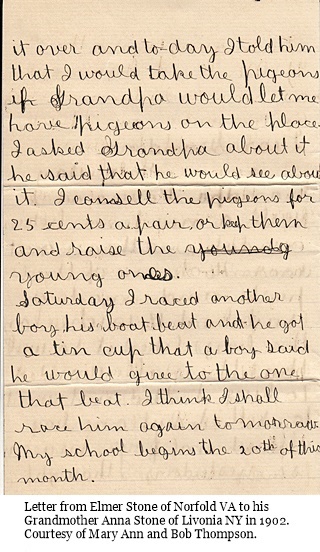 it over and to-day I told him
that I would take the pigeons
if Grandpa would let me
have pigeons on the place
I asked Grandpa about it
he said that he would see about
it. I can sell the pigeons for
25 cents a pair, or keep them
and raise the
young ones.
Saturday I raced another
boy, his boat beat and he got
a tin cup that a boy said
he would give to the one
that beat. I think I shall
race him again
My school begins the 20th of this
month.
Letter from Elmer Stone of Norfold VA to his
Grandmother Anna Stone of Livonia NY in 1902.
Courtesy of Mary Ann and Bob Thompson.